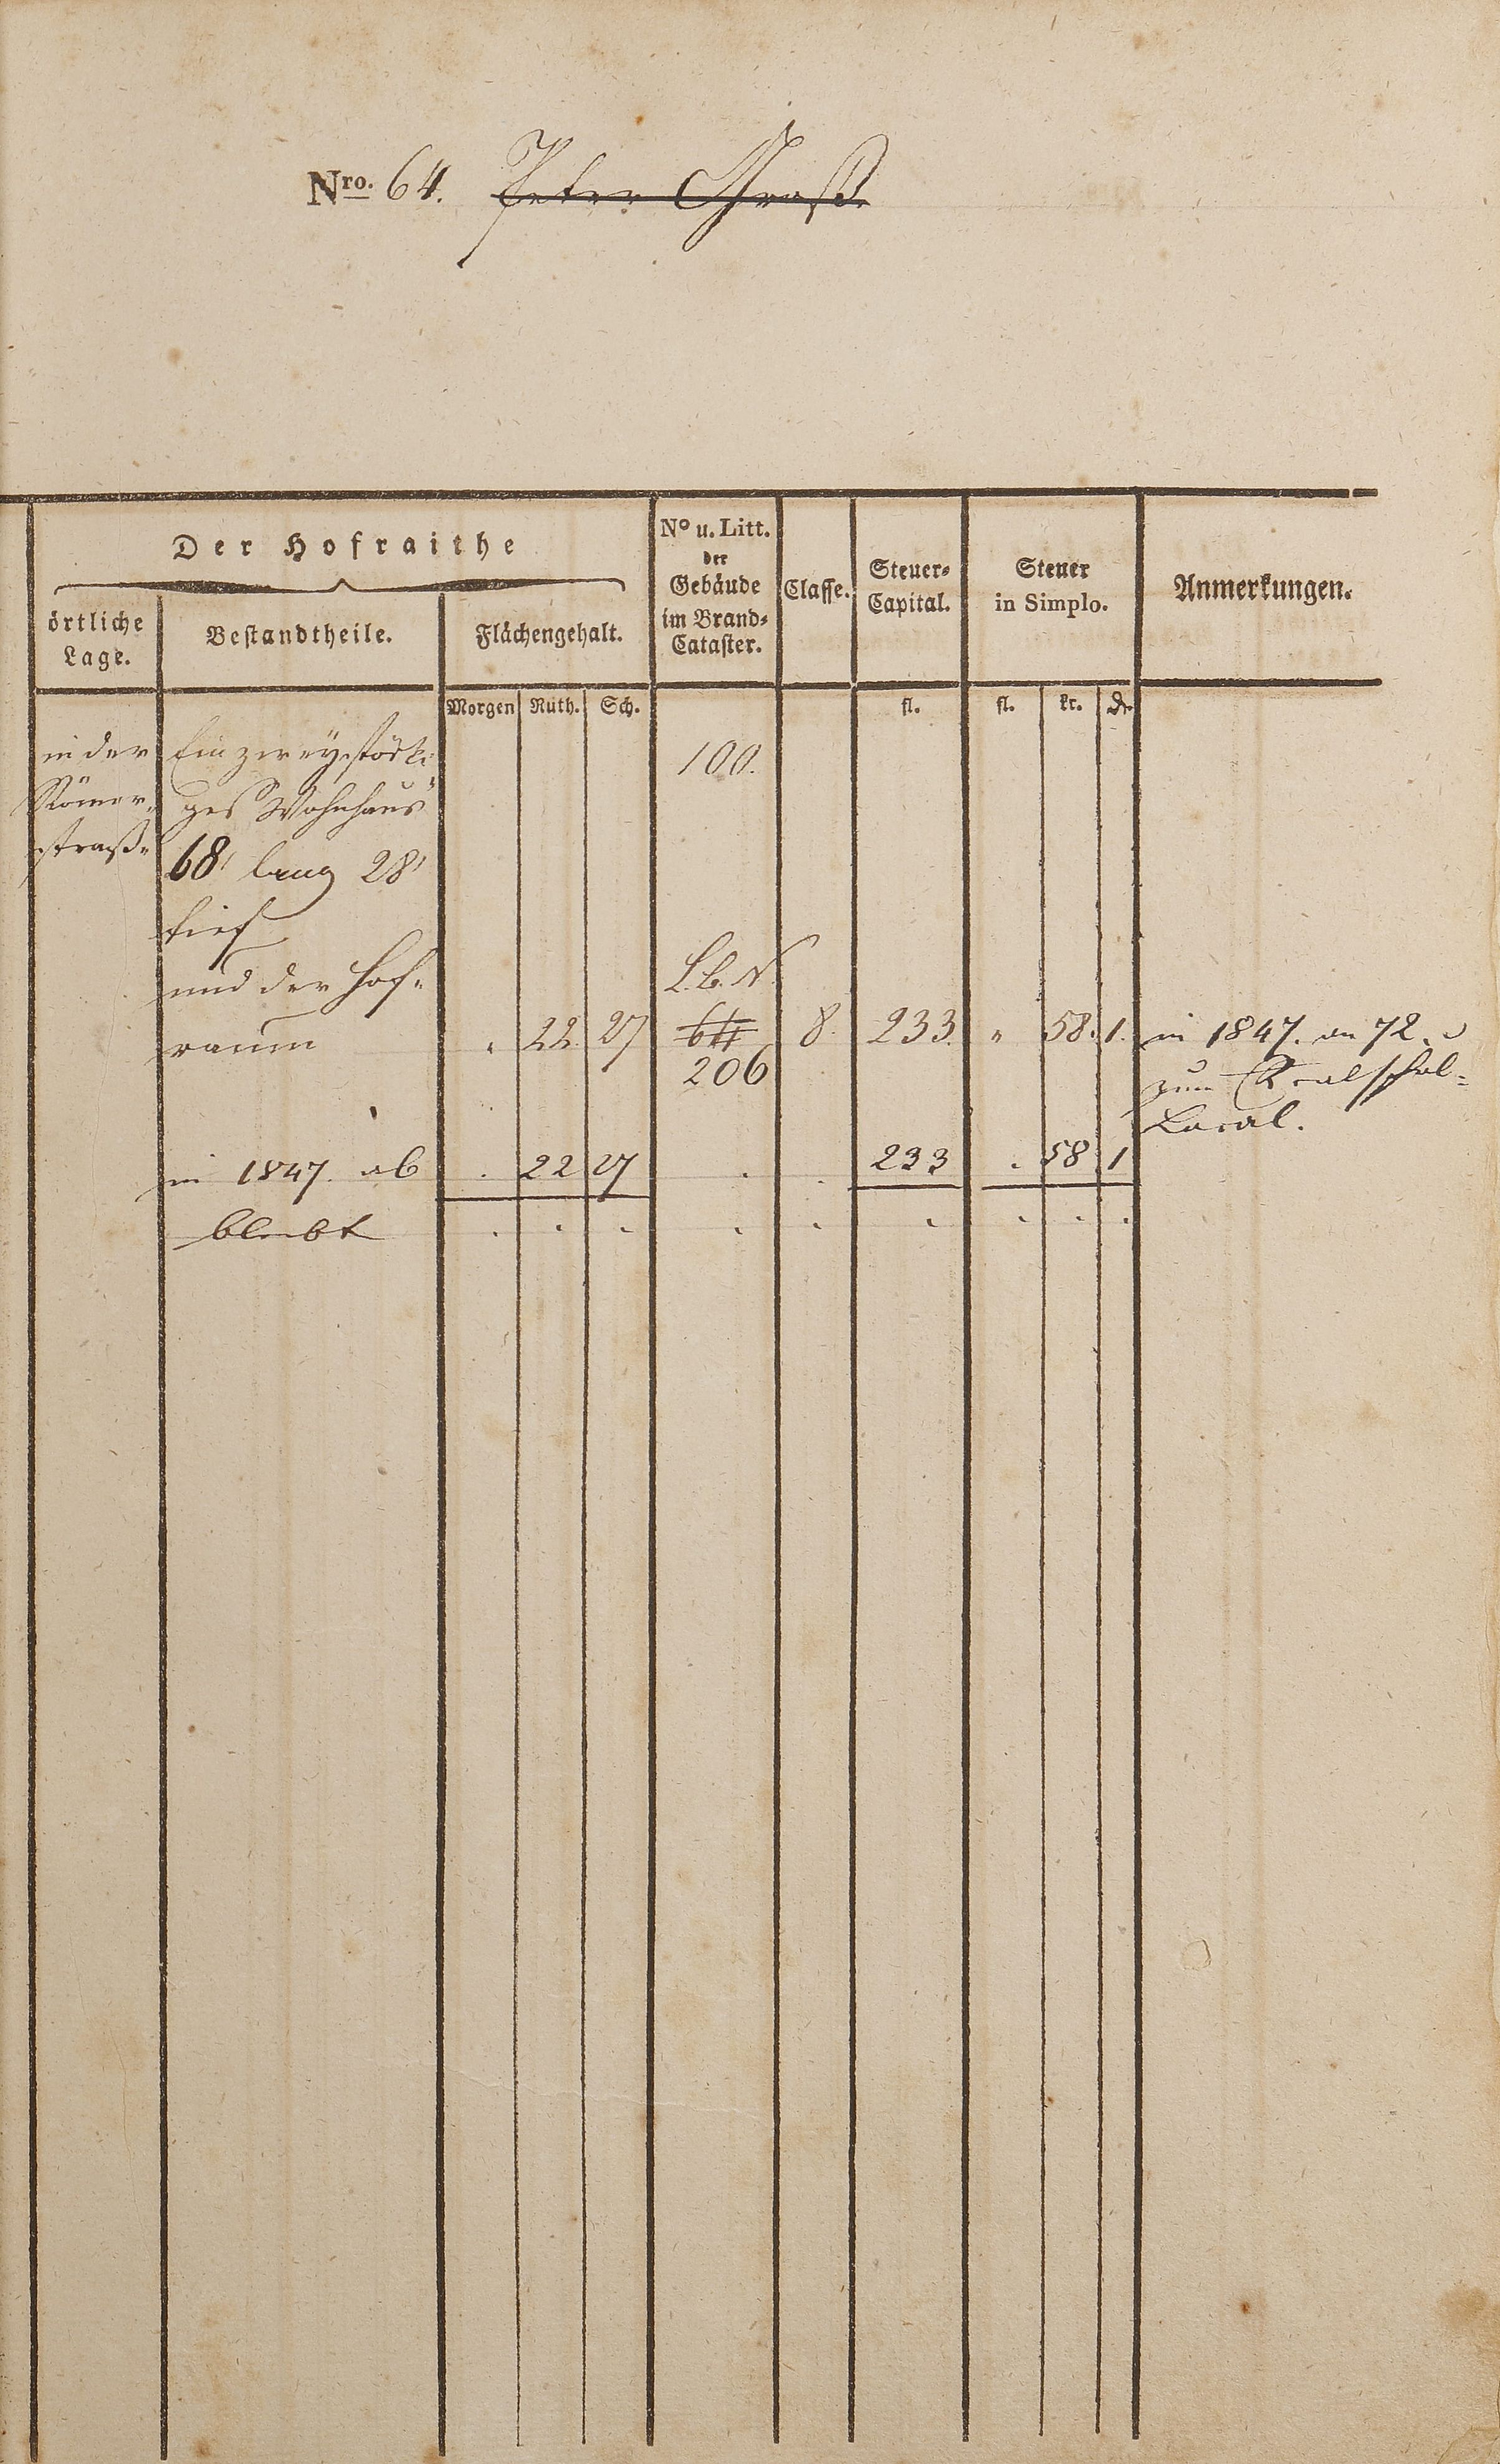 Nro. 64. Peter Groß
Der Hofraithe
örtliche
Lage.
Bestandtheile.
Flächengehalt.
No u. Litt.
der
Gebäude
im Brand-
Cataster.
Classe.
Steuer-
Capital.
Steuer
in Simplo.
Anmerkungen.
Morgen Ruth. Sch. fl. fl. kr. d.
in der Ein zweystöcki 100.
Römer- ges Wohnhaus
straße 68' lang 28'
tief
und der Hof- L. b. N.
raum " 22. 27 64 8. 233. " 58. 1. in 1847. an 72. u
206 zum
Local.
in 1847. ab . 22 27 . . 233 . 58 1
bleibt . . . . . . . . .